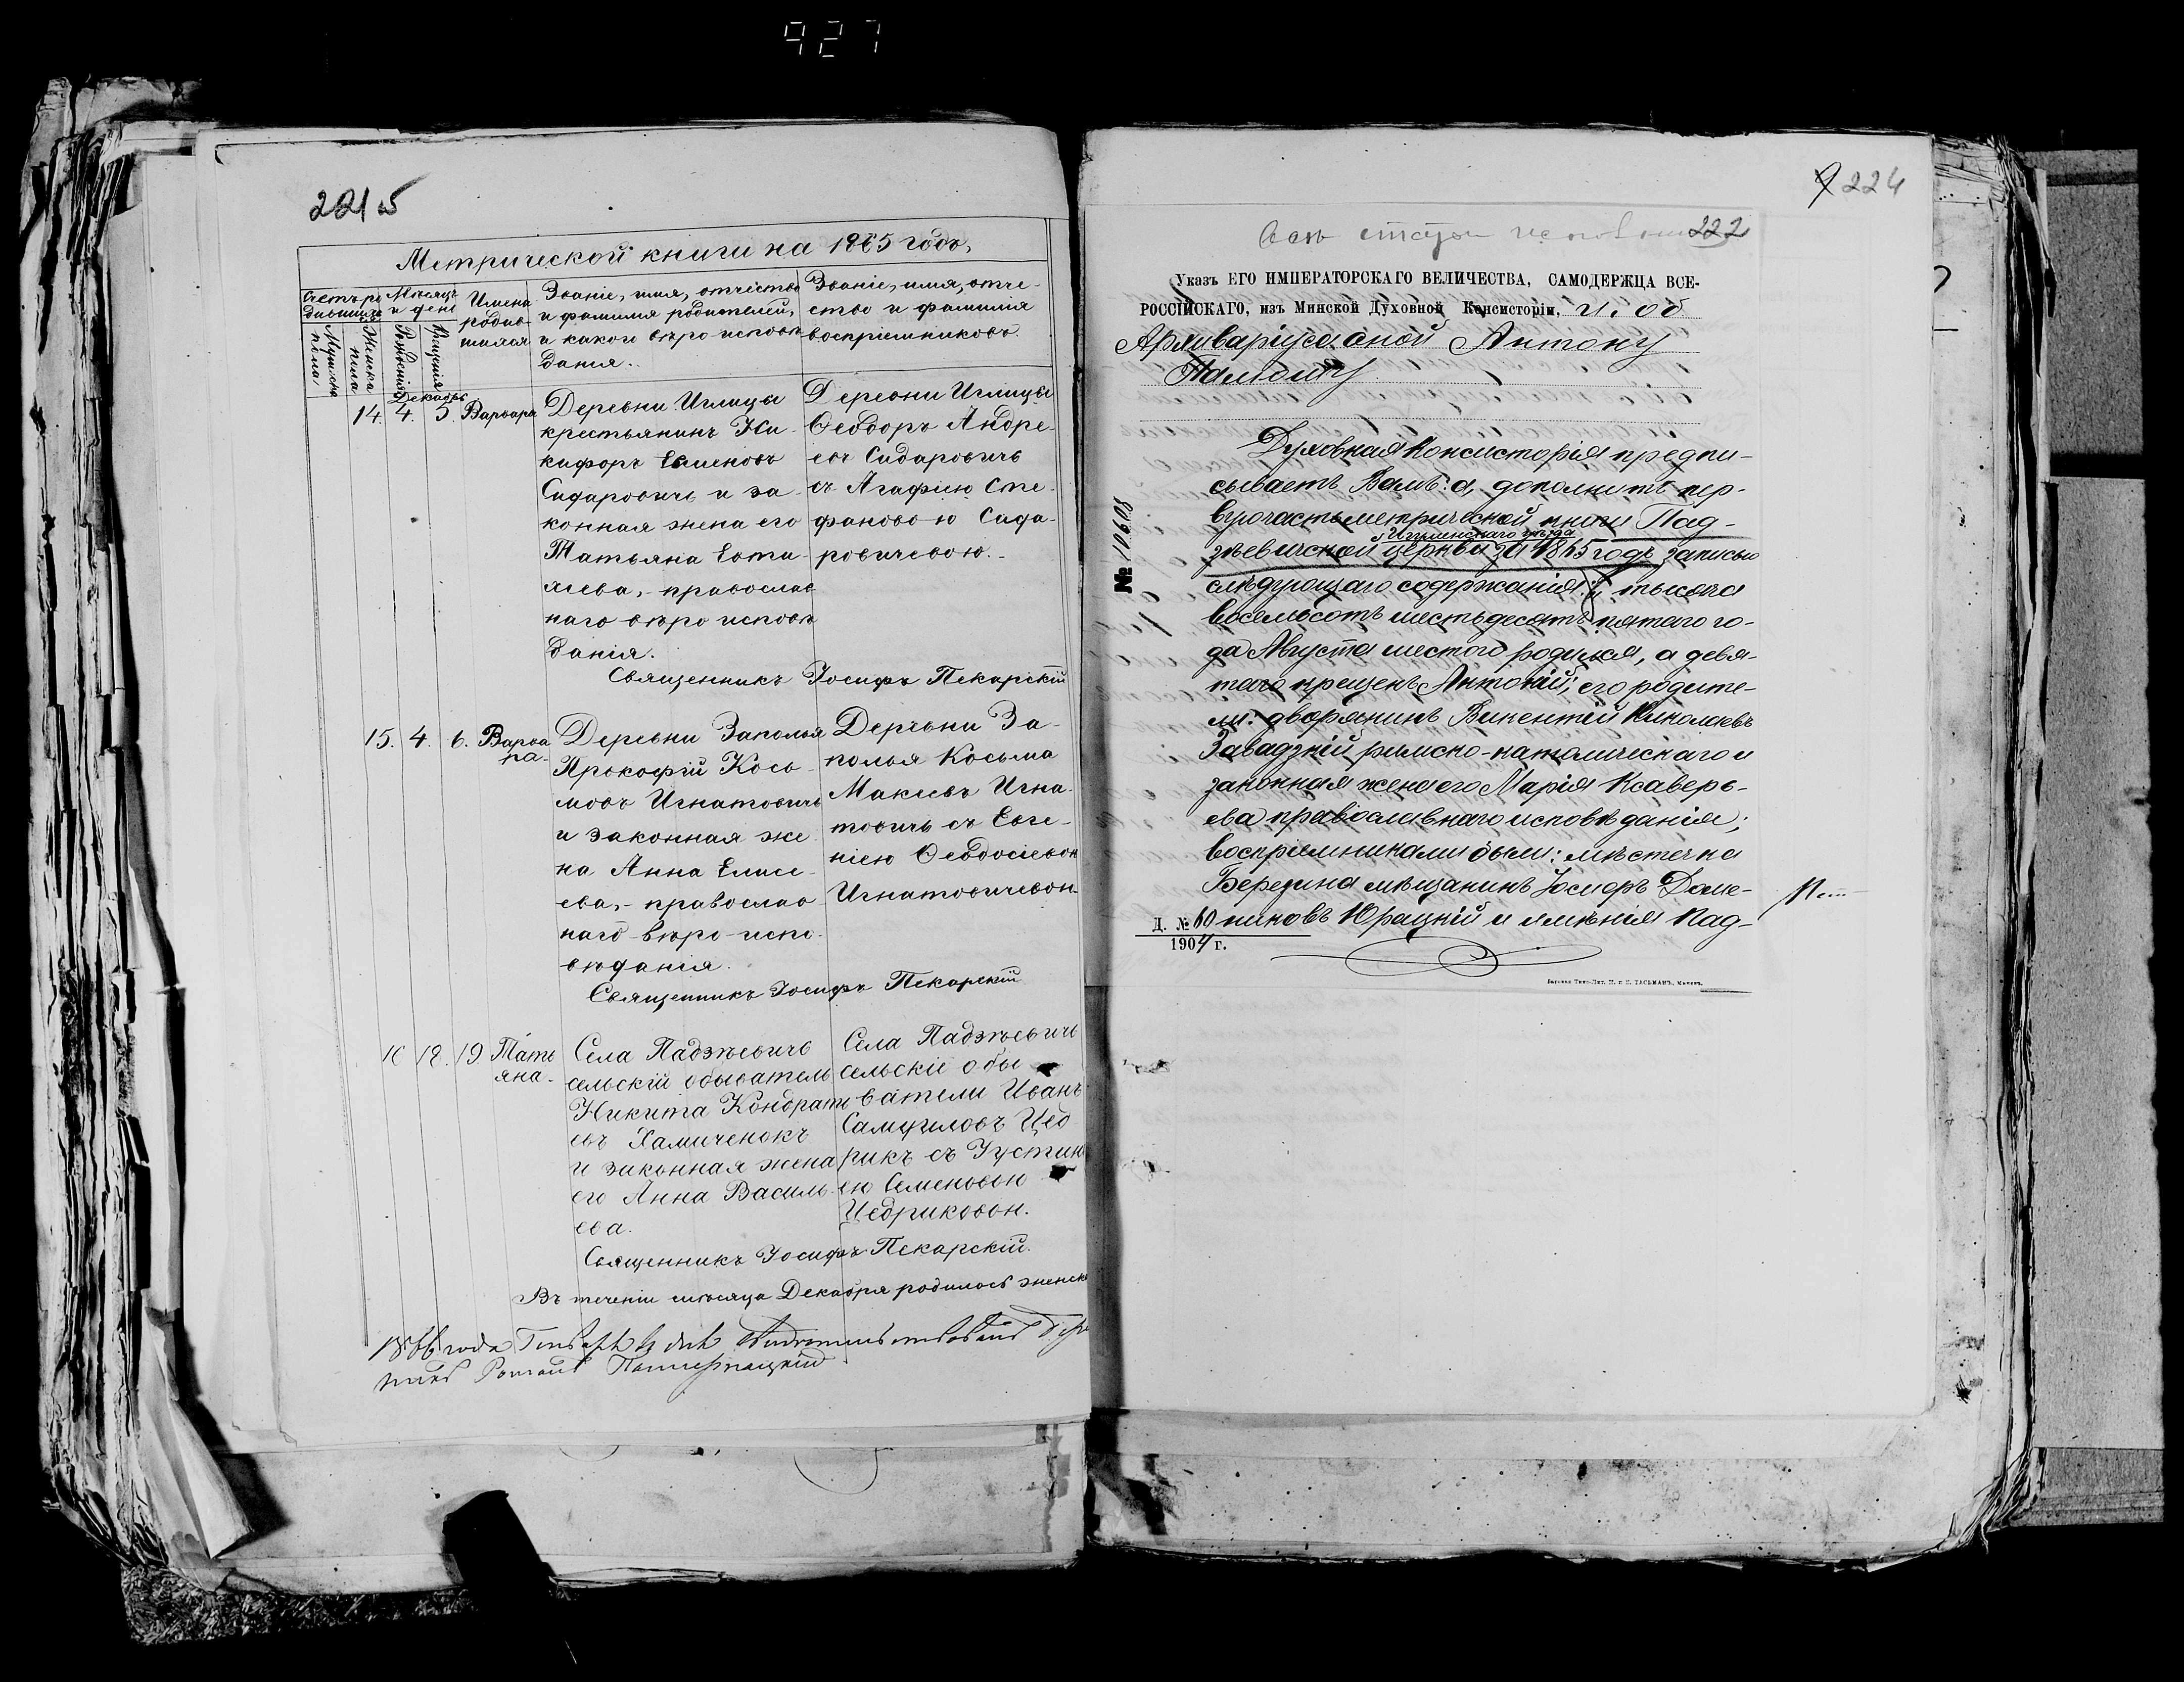 927
221
Метрической книги на 1865 годъ,
Счетъ ро
дившихся
Мужска
пола
Женска
пола
Мѣсяцъ
и день
Рожденія
Крещенія
Имена
родив-
шихся
Званіе, имя, отчество
и фамилія родителей,
и какого вѣро-исповѣ
данія.
Званіе, имя, отче-
ство и фамилія
воспріемниковъ.
Декабрь
14. 4. 5. Варвара
Деревни Иглицы
крестьянинъ Ни-
кифоръ Семеновъ
Сидаровичъ и за-
конная жена его
Татьяна Еоти-
хіева, - православ
наго вѣро исповѣ
данія.
Деревни Иглицы
Ѳеодоръ Андре-
евъ Сидаровичъ
съ Агафіею Сте-
фановою Сида-
ровичевою.
Священникъ Іосифъ Пекарскій
15. 4. 6. Варва
ра.
Деревни Заполья
Прокофій Кось-
мовъ Игнатовичъ
и законная же
на Анна Елисе-
ева, - православ
наго вѣро-испо-
вѣданія.
Деревни За-
полья Косьма
Макеевъ Игна-
товичъ съ Евге-
ніею Ѳеодосіевой
Игнатовичевой
Священникъ Іосифъ Пекарскій
16 18. 19 Тать
яна.
Села Падзѣевичъ
сельскій обыватель
Никита Кондрать
евъ Хамиченокъ
и законная жена
его Анна Василь
ева.
Села Падзѣевичъ
сельскіе обы
ватели Иванъ
Самуиловъ Цед
рикъ съ Іустин
ею Семеновою
Цедриковой.
Священникъ Іосифъ Пекарскій.
Въ теченіи мѣсяца Декабря родилось женска
1866 года
Романъ
224
222
Указъ ЕГО ИМПЕРАТОРСКАГО ВЕЛИЧЕСТВА, САМОДЕРЖЦА ВСЕ-
РОССІЙСКАГО, изъ Минской Духовной Консисторіи, и. об
Архиваріуса оной Антону
Духовная Консисторія предпи-
сываетъ Вамъ: а, дополнить пер-
вую часть метрической книги Пад-
Игуменскаго уѣзда
зѣевичской церкви за 1865 годъ записью
слѣдующаго содержанія: „тысяча
восемьсотъ шестьдесятъ пятаго го-
да Августа шестого родился, а девя-
таго крещенъ Антоній; его родите-
ли: дворянинъ Викентій Николаевъ
Завадзкій римско-католическаго и
законная жена его Марія Ксаверь-
ева православнаго исповѣданія;
воспріемниками были: мѣстечка
Березина мѣщанинъ Іосифъ Доме-
никовъ Юрацкій и имѣнія Пад-
№ 12608
Д. № 60
1904 г.